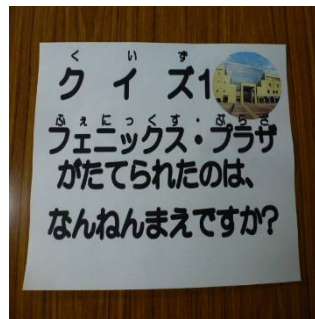 くいず
クイズ1
ふぇにっくす・ぷらざ
フェニックス・プラザ
がたてられたのは、
なんねんまえですか?